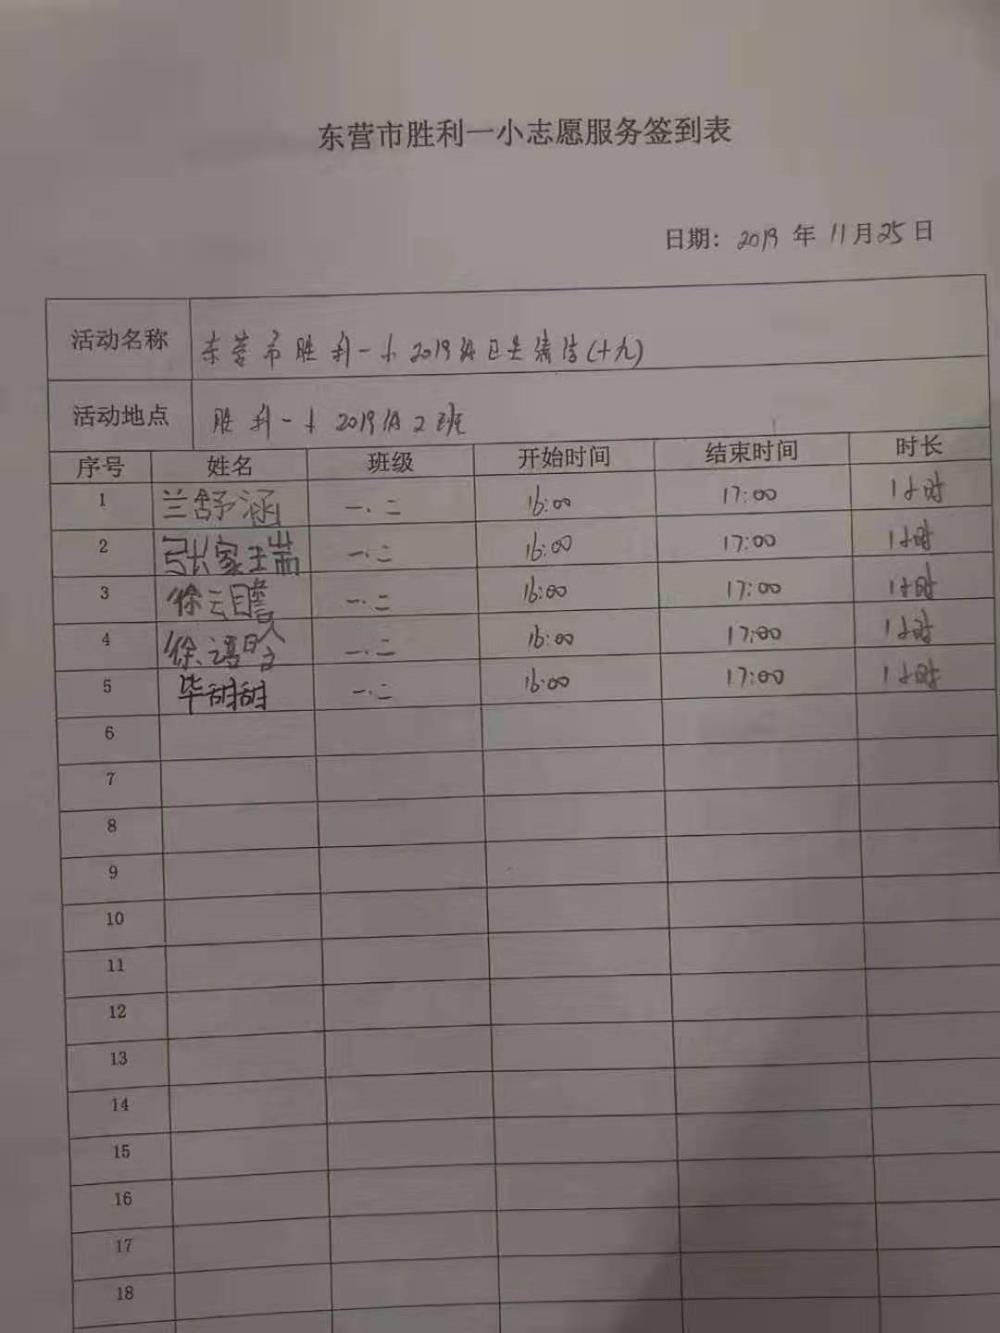 东营市胜利一小志愿服务签到表
日期: 2019 年 11月25日
活动名称 东营市胜利一小2019级卫生清洁(十九)
活动地点 胜利一小2019级2班
序号 姓名 班级 开始时间 结束时间 时长
1 兰舒涵 一.二 16:00 17:00 1小时
2 张家瑞 一.二 16:00 17:00 1小时
3 徐云瞻 一.二 16:00 17:00 1小时
4 徐 一.二 16:00 17:00 1小时
5 毕甜甜 一.二 16:00 17:00 1小时
6
7
8
9
10
11
12
13
14
15
16
17
18